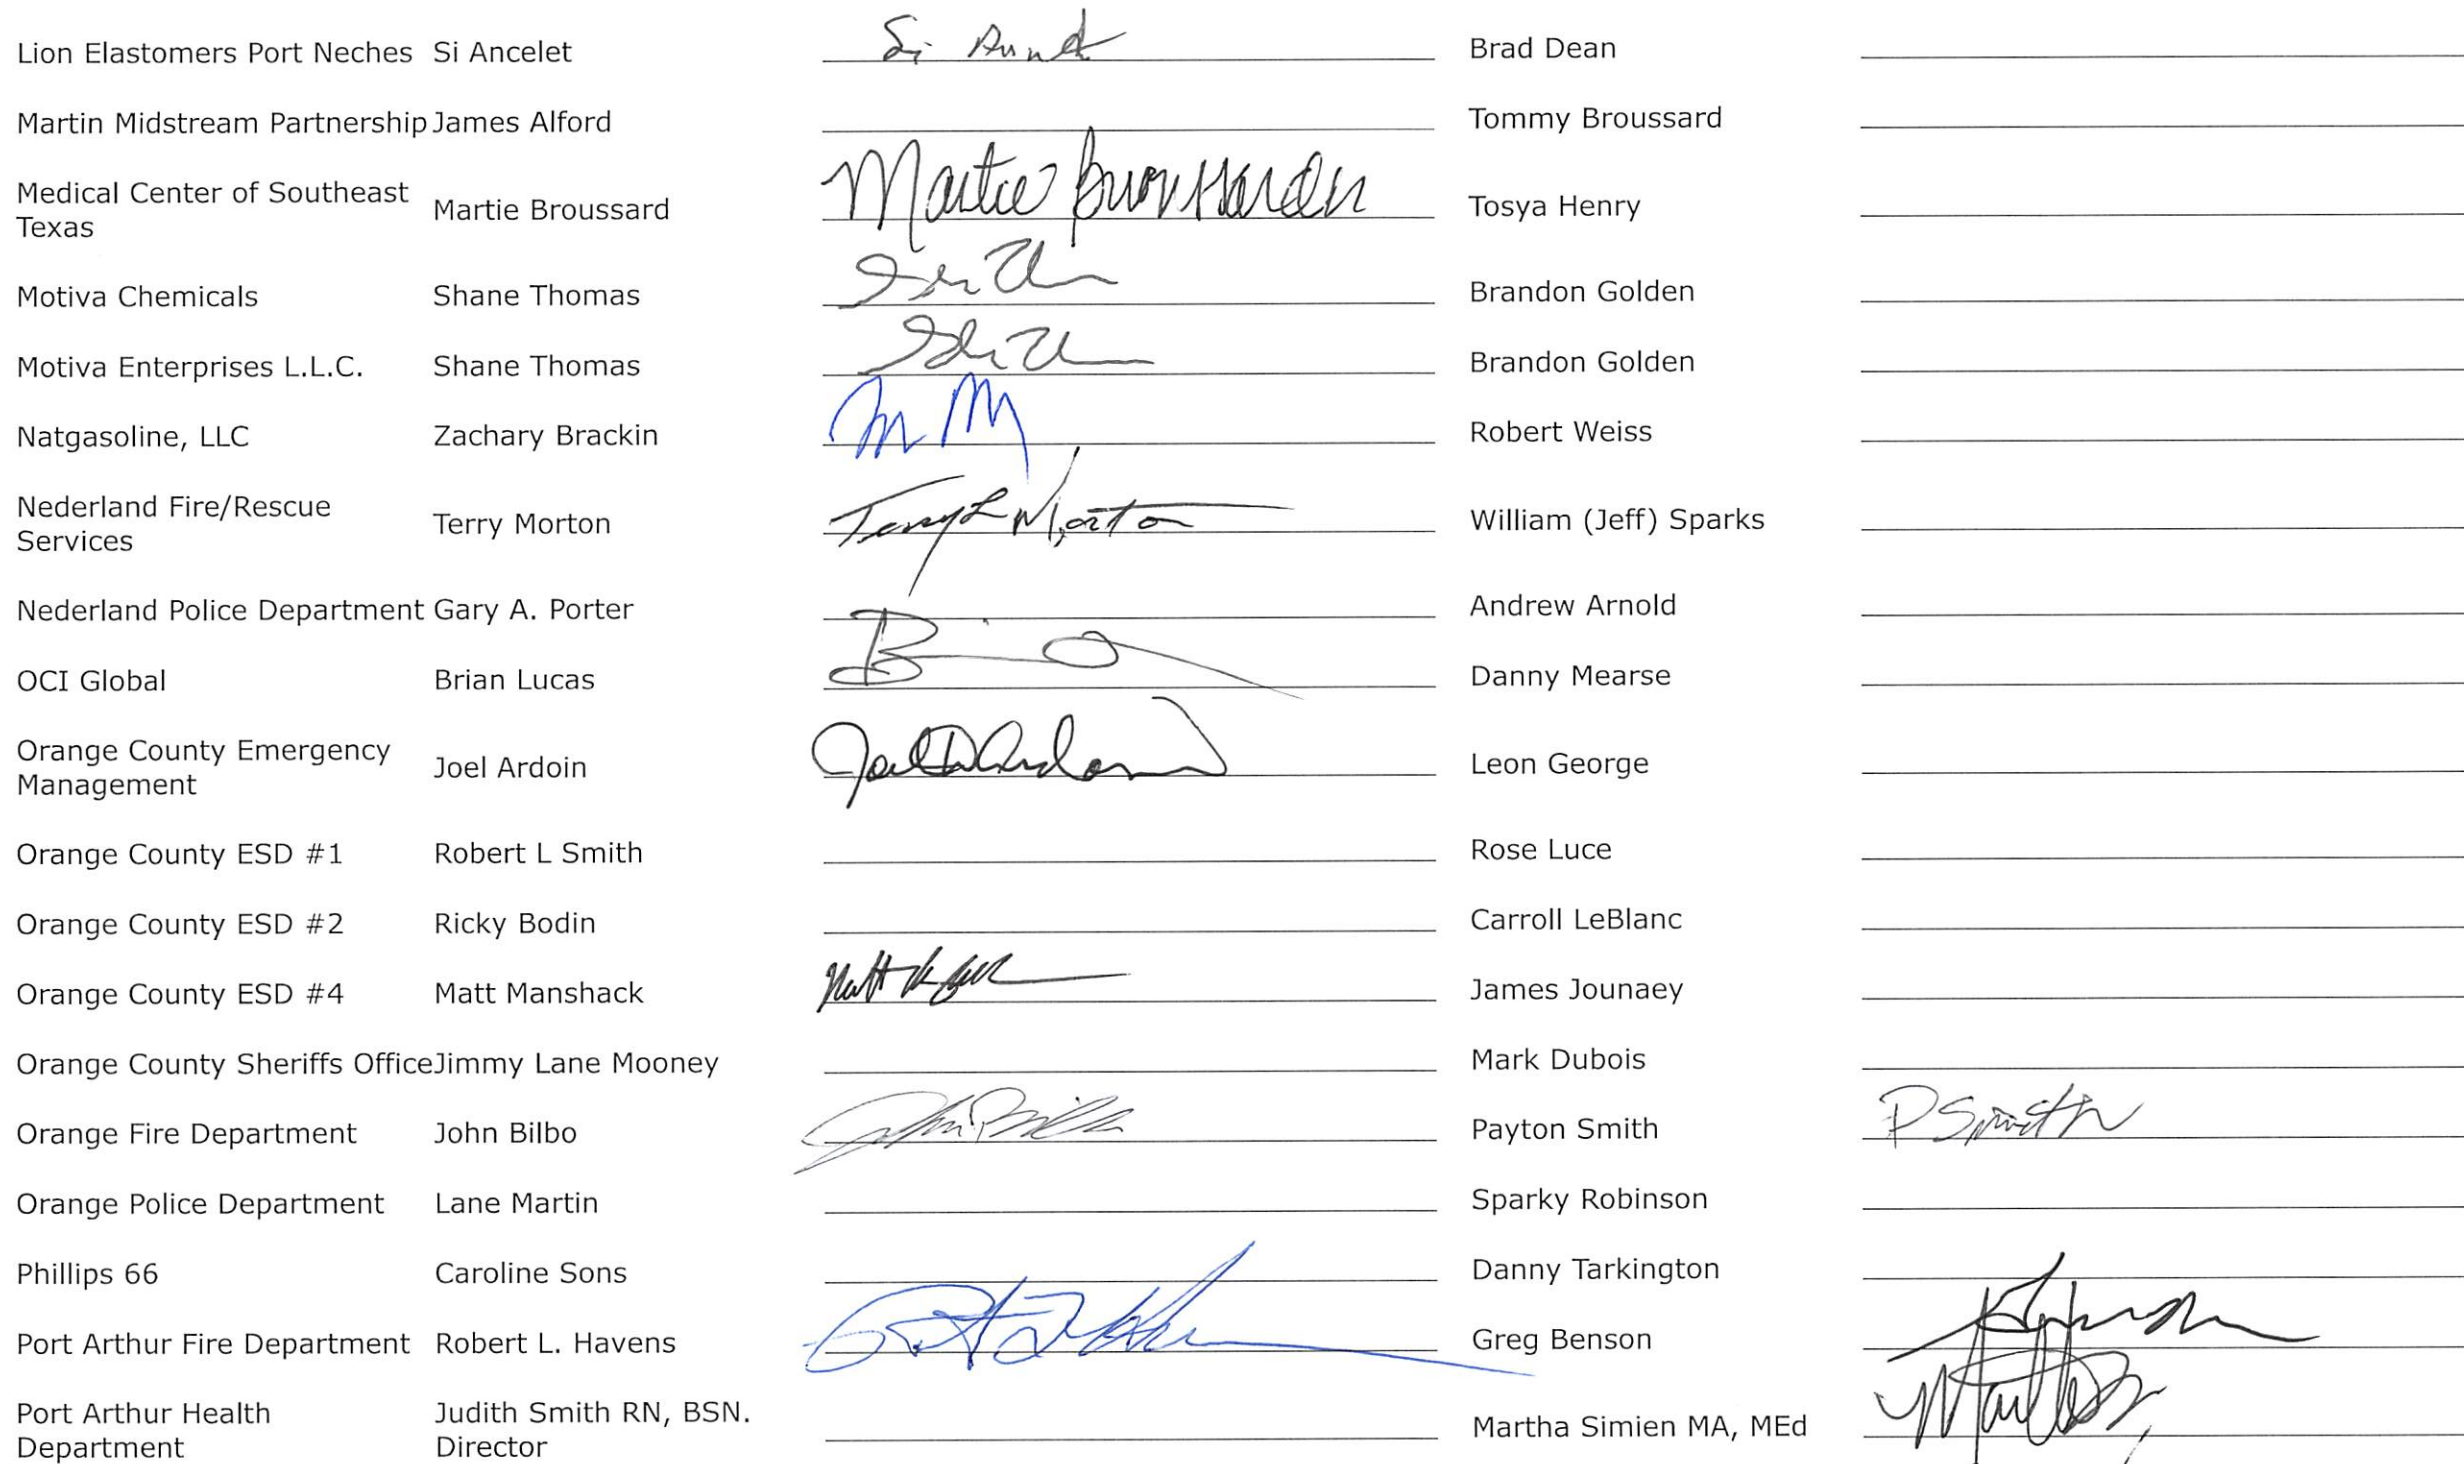 Lion Elastomers Port Neches Si Ancelet Si Brad Dean
Martin Midstream Partnership James Alford Tommy Broussard
Medical Center of Southeast
Texas Martie Broussard Martie Broussard Tosya Henry
Motiva Chemicals Shane Thomas Brandon Golden
Motiva Enterprises L.L.C. Shane Thomas Brandon Golden
Natgasoline, LLC Zachary Brackin Robert Weiss
Nederland Fire/Rescue
Services Terry Morton Terry L Morton William (Jeff) Sparks
Nederland Police Department Gary A. Porter Andrew Arnold
OCI Global Brian Lucas Danny Mearse
Orange County Emergency
Management Joel Ardoin Joel Ardoin Leon George
Orange County ESD #1 Robert L Smith Rose Luce
Orange County ESD #2 Ricky Bodin Carroll LeBlanc
Orange County ESD #4 Matt Manshack Matt James Jounaey
Orange County Sheriffs Office Jimmy Lane Mooney Mark Dubois
Orange Fire Department John Bilbo Payton Smith P Smith
Orange Police Department Lane Martin Sparky Robinson
Phillips 66 Caroline Sons Danny Tarkington
Port Arthur Fire Department Robert L. Havens Greg Benson
Port Arthur Health
Department Judith Smith RN, BSN.
Director Martha Simien MA, MEd